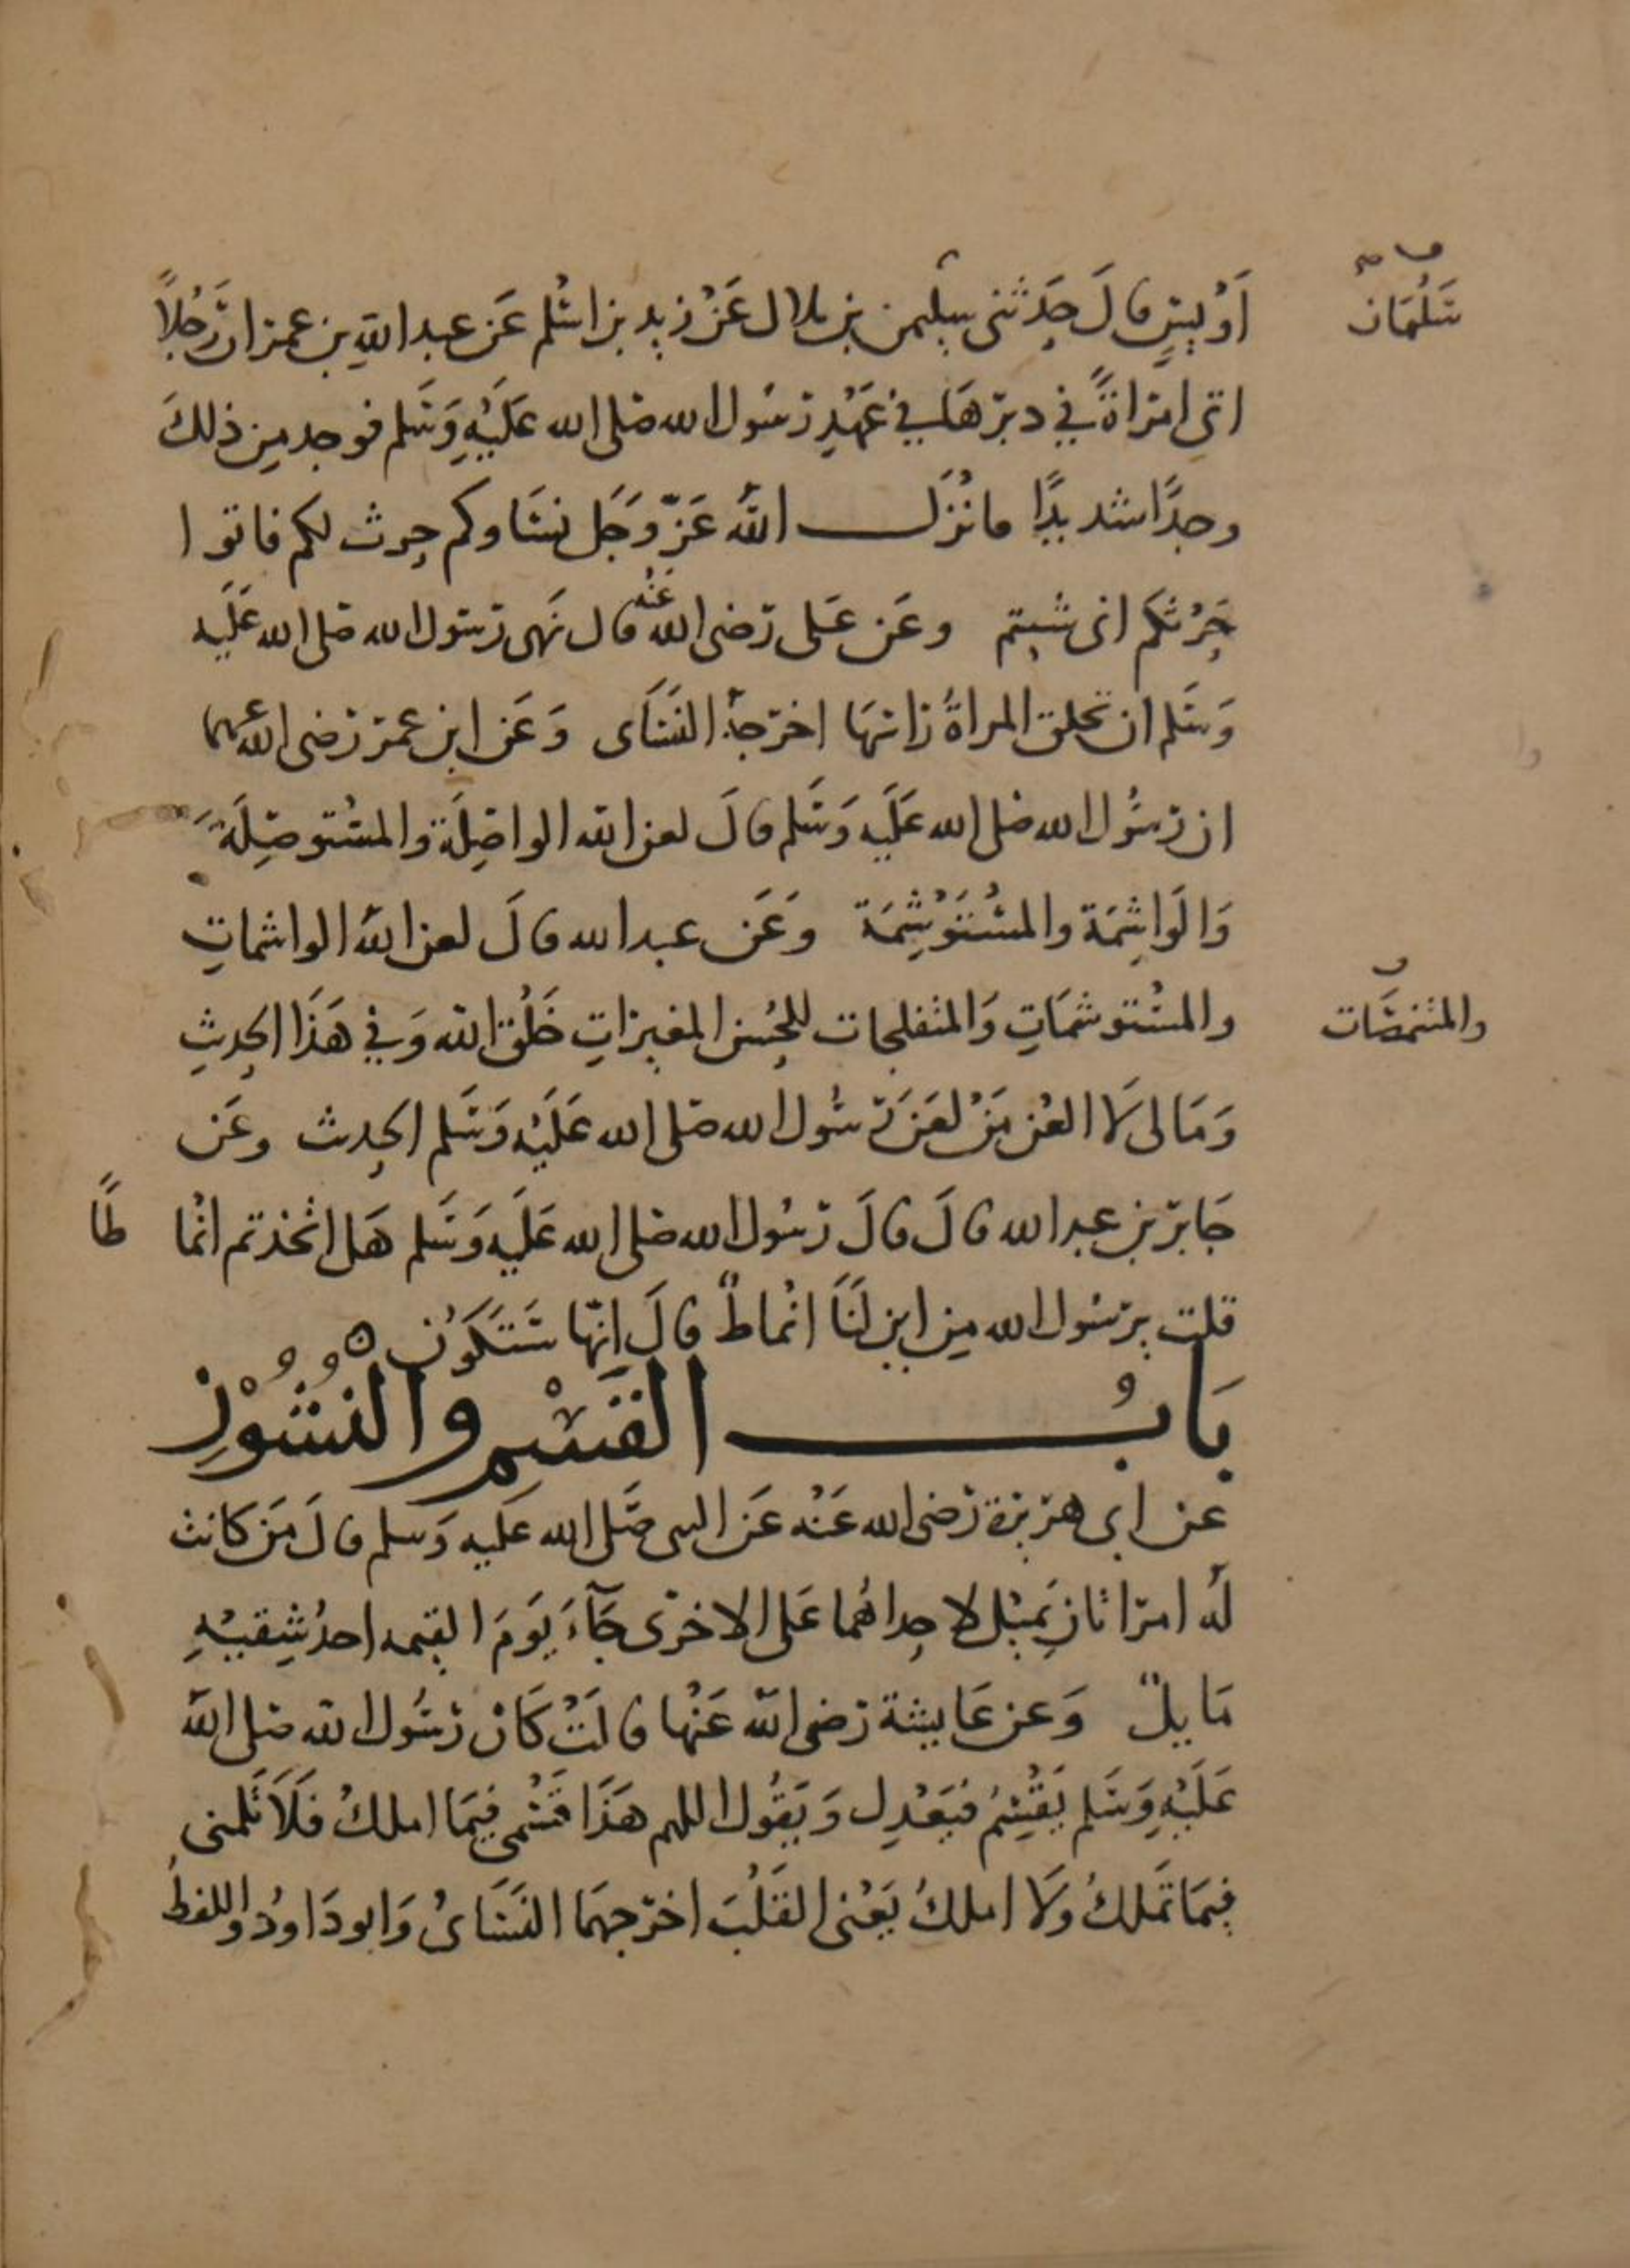 اَوُيسٍ قالَ حَدثنى سليمن بن بلال عَنْ زيد بن اسْلم عَن عبد اللهِ بن عمر ان رَجُلاً
سَلْمَان
اتى امراةً في دبرهَا في عَهْدِ رسُول الله صلى الله عَلَيْهِ وَسَلم فوجد مِن ذلكَ
وجدًا شديدًا فانْزَل الله عَزّ وَجَل نسَاوكم حرث لكم فاتوا
حَرْثكم انى شيتم وعَن عَلى رَضى الله عَنْه قال نَهى رَسول الله صلى الله عَلَيه
وَسَلم ان تحلق المراةُ رَاسهَا اخرَجهُ النسَاى وَعَن ابن عمَر رَضى الله عنهما
ان رسُول الله صلى الله عَلَيه وَسَلم قالَ لعن الله الواصِلَة والمسْتوصِلَة
وَالوَاشِمَة والمسْتَوْشِمَة وعَن عبد الله قالَ لعن الله الواشماتِ
والمسْتوشمَاتِ وَالمتفلجات للحُسن المغيراتِ خَلْق الله وَفي هَذَا الحديثِ
والمتنمصَات
وَمَا لى لَا العْن مَنْ لعَن رَسُول الله صَلى الله عَلَيْه وَسَلم الحديث وعَن
جَابر بن عبد الله قالَ قالَ رَسُول الله صَلى الله عَلَيه وَسَلم هَل اتخذتم انْما طًا
قلت يرسُول الله مِن اين لَنَا انْماطٌ قالَ اِنّها سَتَكَوُن ه
بَابُ القَسْمِ وَالنُشُوْزِ
عن ابى هرَيرة رَضى الله عَنْه عَن النبى صَلى الله عَلَيه وَسلم قالَ مَن كانت
لهُ امرَاتان يَميْل لاحداهُما عَلى الاخرَى جَآءَ يَوَمَ القيمه احدُ شِقيْهِ
مَايلٌ وَعن عَايشة رَضى الله عَنْها قالَتْ كَان رَسُول الله صلى الله
عَلَيْهِ وَسَلم يَقْسِمُ فيَعْدِل وَيَقُول اللهم هَذَا قَسْمى فِيمَا املكُ فَلَا تَلمنى
فِيمَا تَملكُ وَلَا املكُ يَعْنى القَلْبَ اخرَجهمَا النسَاىُ وَابو دَاودُ واللفظُ